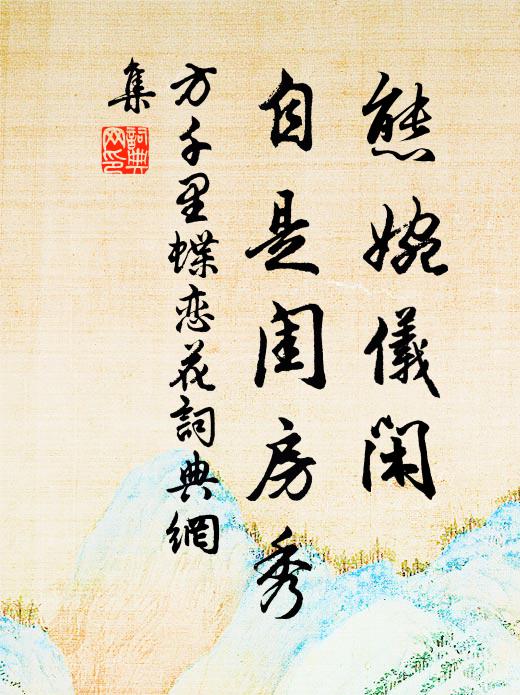 態婉儀閑
自是閨房秀
方千里蝶恋花詞典網
集
詞典
网印